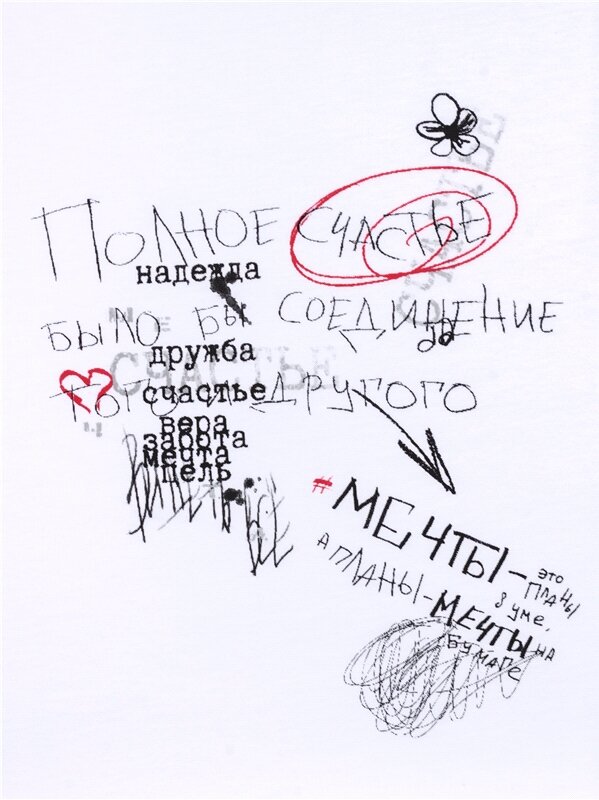 ПОЛНОЕ СЧАСТЬЕ
надежда
БЫЛО БЫ СОЕДИНЕНИЕ
дружба
СЧАСТЬЕ
счастье
ТОГО И ДРУГОГО
вера
забота
мечта
цель
#МЕЧТЫ - ЭТО
ПЛАНЫ
В УМЕ,
А ПЛАНЫ - МЕЧТЫ НА
БУМАГЕ